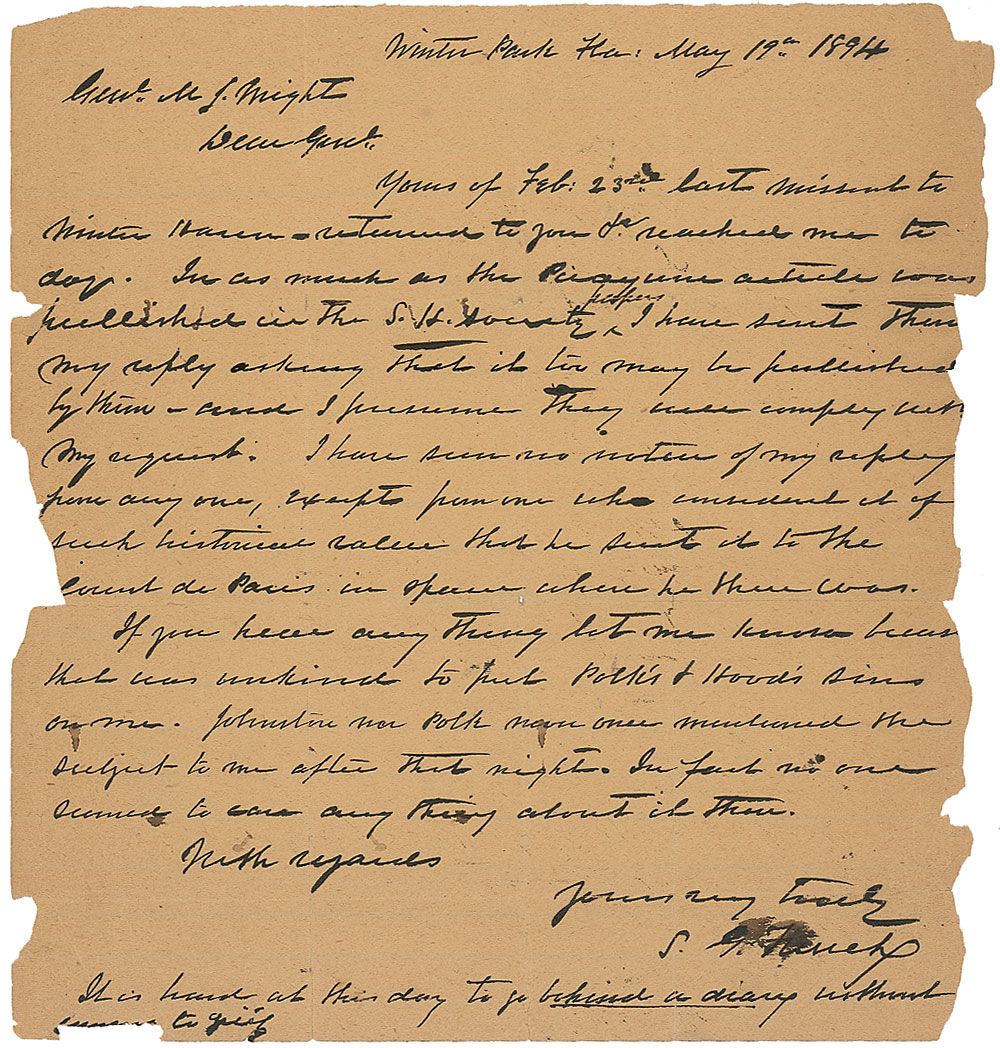 Winter Park Fla: May 19th 1894
Genl. M J. Wright
Dear Genl.
Yours of Feb: 23rd last missent to
Winter Haven - returned to you &c reached me to
day. In as much as the Picayune article was
papers
published in the S. H. Society ^ I have sent them
my reply asking that it too may be published
by them - and I presume they will comply with
my request. I have seen no notice of my reply
from any one, except from one who considered it of
such historical value that he sent it to the
Count de Paris in Spain where he then was.
If you hear any thing let me know because
that was unkind to put Polk's & Hood's sins
on me. Johnston nor Polk never once mentioned the
subject to me after that night. In fact no one
seemed to care any thing about it then.
With regards
Yours very truly
S. G. French
It is hard at this day to go behind a diary without
coming to grief